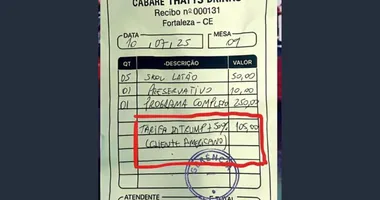 CABARÉ THATTY DRINKS
Recibo nº 000131
Fortaleza - CE
DATA MESA
10 / 07 / 25 09
QT DESCRIÇÃO VALOR
05 SKOL LATÃO 50,00
01 PRESERVATIVO 10,00
01 PROGRAMA COMPLETO 250,00
TARIFA DI TRUMP + 50% 105,00
(CLIENTE AMERICANO)
GERÊNCIA
ATENDENTE